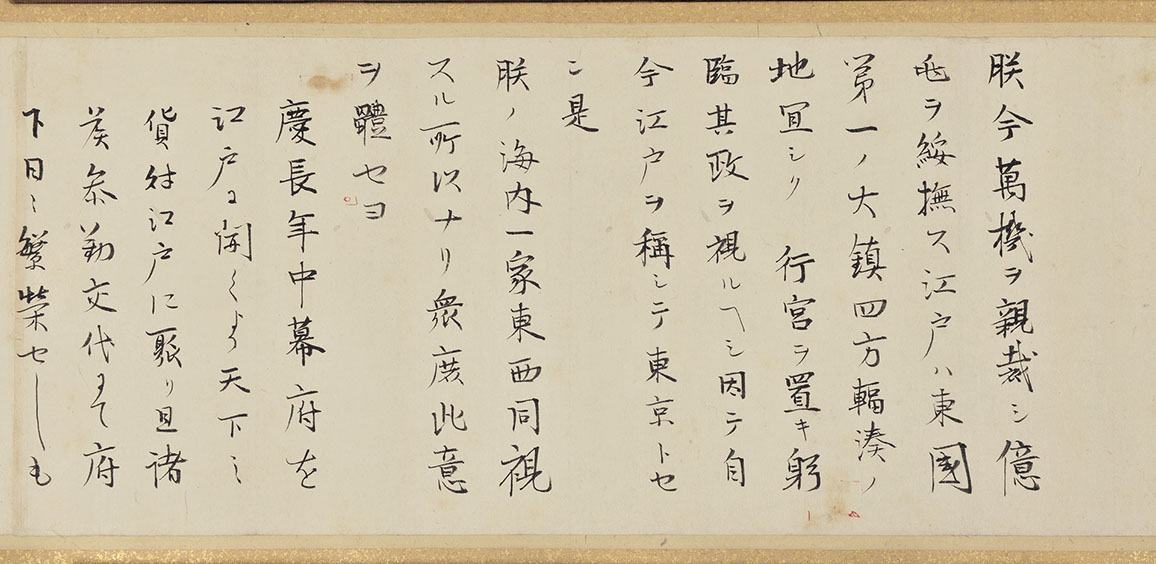 朕今萬機ヲ親裁シ億
兆ヲ綏撫ス江戸ハ東國
第一ノ大鎮四方輻湊ノ
地宜シク 行宮ヲ置キ躬
臨其政ヲ視ルヘシ因テ自
今江戸ヲ稱シテ東京トセ
ン是
朕ノ海内一家東西同視
スル所以ナリ衆庶此意
ヲ體セヨ
慶長年中幕府を
江戸に開くより天下之
貨財江戸に聚り且諸
侯叅勤交代して府
下日々繁榮せしも